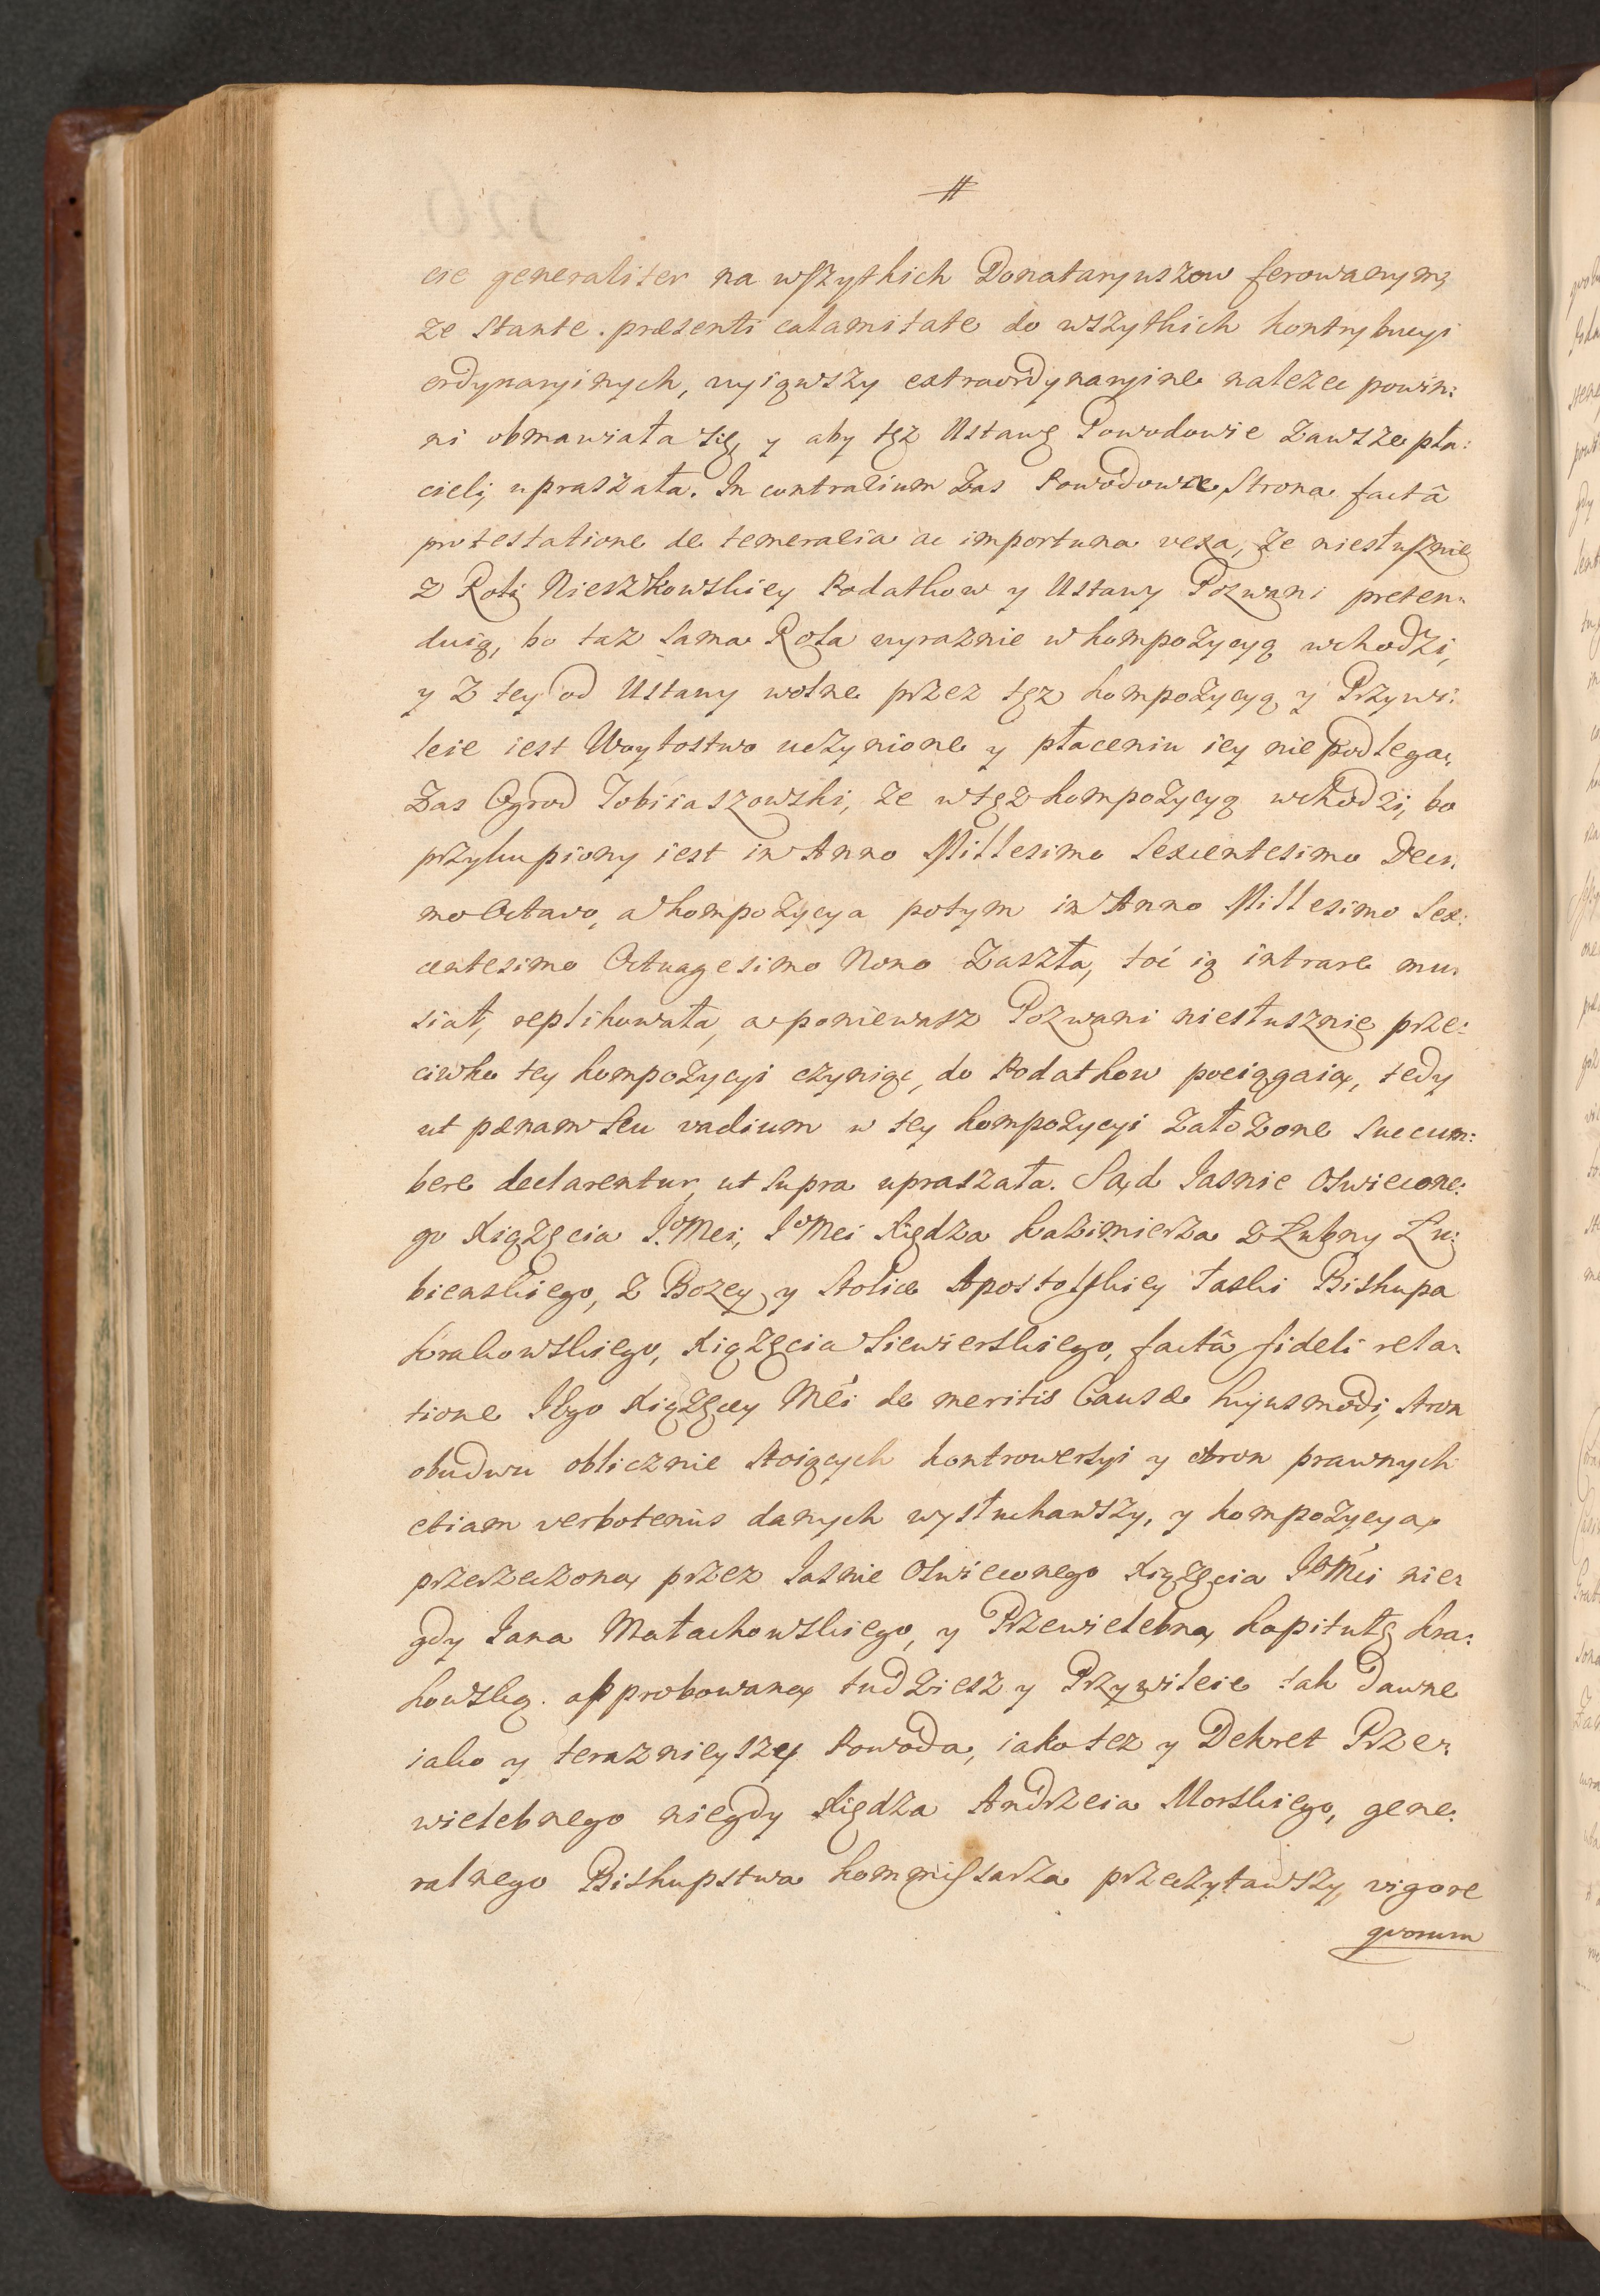 cie generaliter na wszytkich Donataryuszow ferowanym,
ze stante præsenti calamitate do wszytkich kontrybucyi
ordynaryinych, wyiąwszy extraordynaryine nalezec powin:
ni obmawiała się, y aby tęz Ustawę Powodowie zawsze pła:
cieli, upraszała. In contrarium zas Powodowie, Strona factâ
protestatione de temeraria ac importuna vexa, ze niesłusznie
z Roli Nieszkowskiey Podatkow y Ustawy Pozwani preten:
duią, bo taz sama Rola wyraznie w kompozycyą wchodzi,
y z tey od Ustawy wolne przez tęz kompozycyą y Przywi:
leie iest Woytostwo uczynione y płaceniu iey nie podlega,
zas Ogrod Tobiiaszowski, ze w tęz kompozycyą wchodzi, bo
przykupiony iest in Anno Millesimo Sexcentesimo Deci:
mo Octavo, a kompozycya potym in Anno Millesimo Sex:
centesimo Octuagesimo Nono zaszła, toć ią intrare mu:
siał, replikowała, a poniewasz Pozwani niesłusznie prze:
ciwko tey kompozycyi czyniąc, do Podatkow pociągaią, tedy
ut pænam seu vadium w tey kompozycyi załozone succum:
bere declarentur, ut supra upraszała. Sąd Jasnie Oswiecone:
go Xiążęcia J.Mci, JoMci Xiędza Kazimierza z Łubny Łu:
bienskiego, z Bozey y Stolice Apostolskiey łaski Biskupa
Krakowskiego, Xiążęcia Siewierskiego, factâ fideli rela:
tione JEgo Xiążęcey Mći de meritis Causæ hujusmodi, stron
obudwu oblicznie stoiących kontrowersyi y obron prawnych
etiam verbotenus danych wysłuchawszy, y kompozycyą
przerzeczoną przez Jasnie Oswieconego Xiążęcia JoMći nie:
gdy Jana Małachowskiego, y Przewielebną Kapitułę Kra:
kowską approbowaną tudziesz y Przywileie tak dawne
iako y terazniejszey Powoda, iako tez y Dekret Prze:
wielebnego niegdy Xiędza Andrzeia Morskiego, gene:
ralnego Biskupstwa Kommissarza przeczytawszy, vigore
quorum